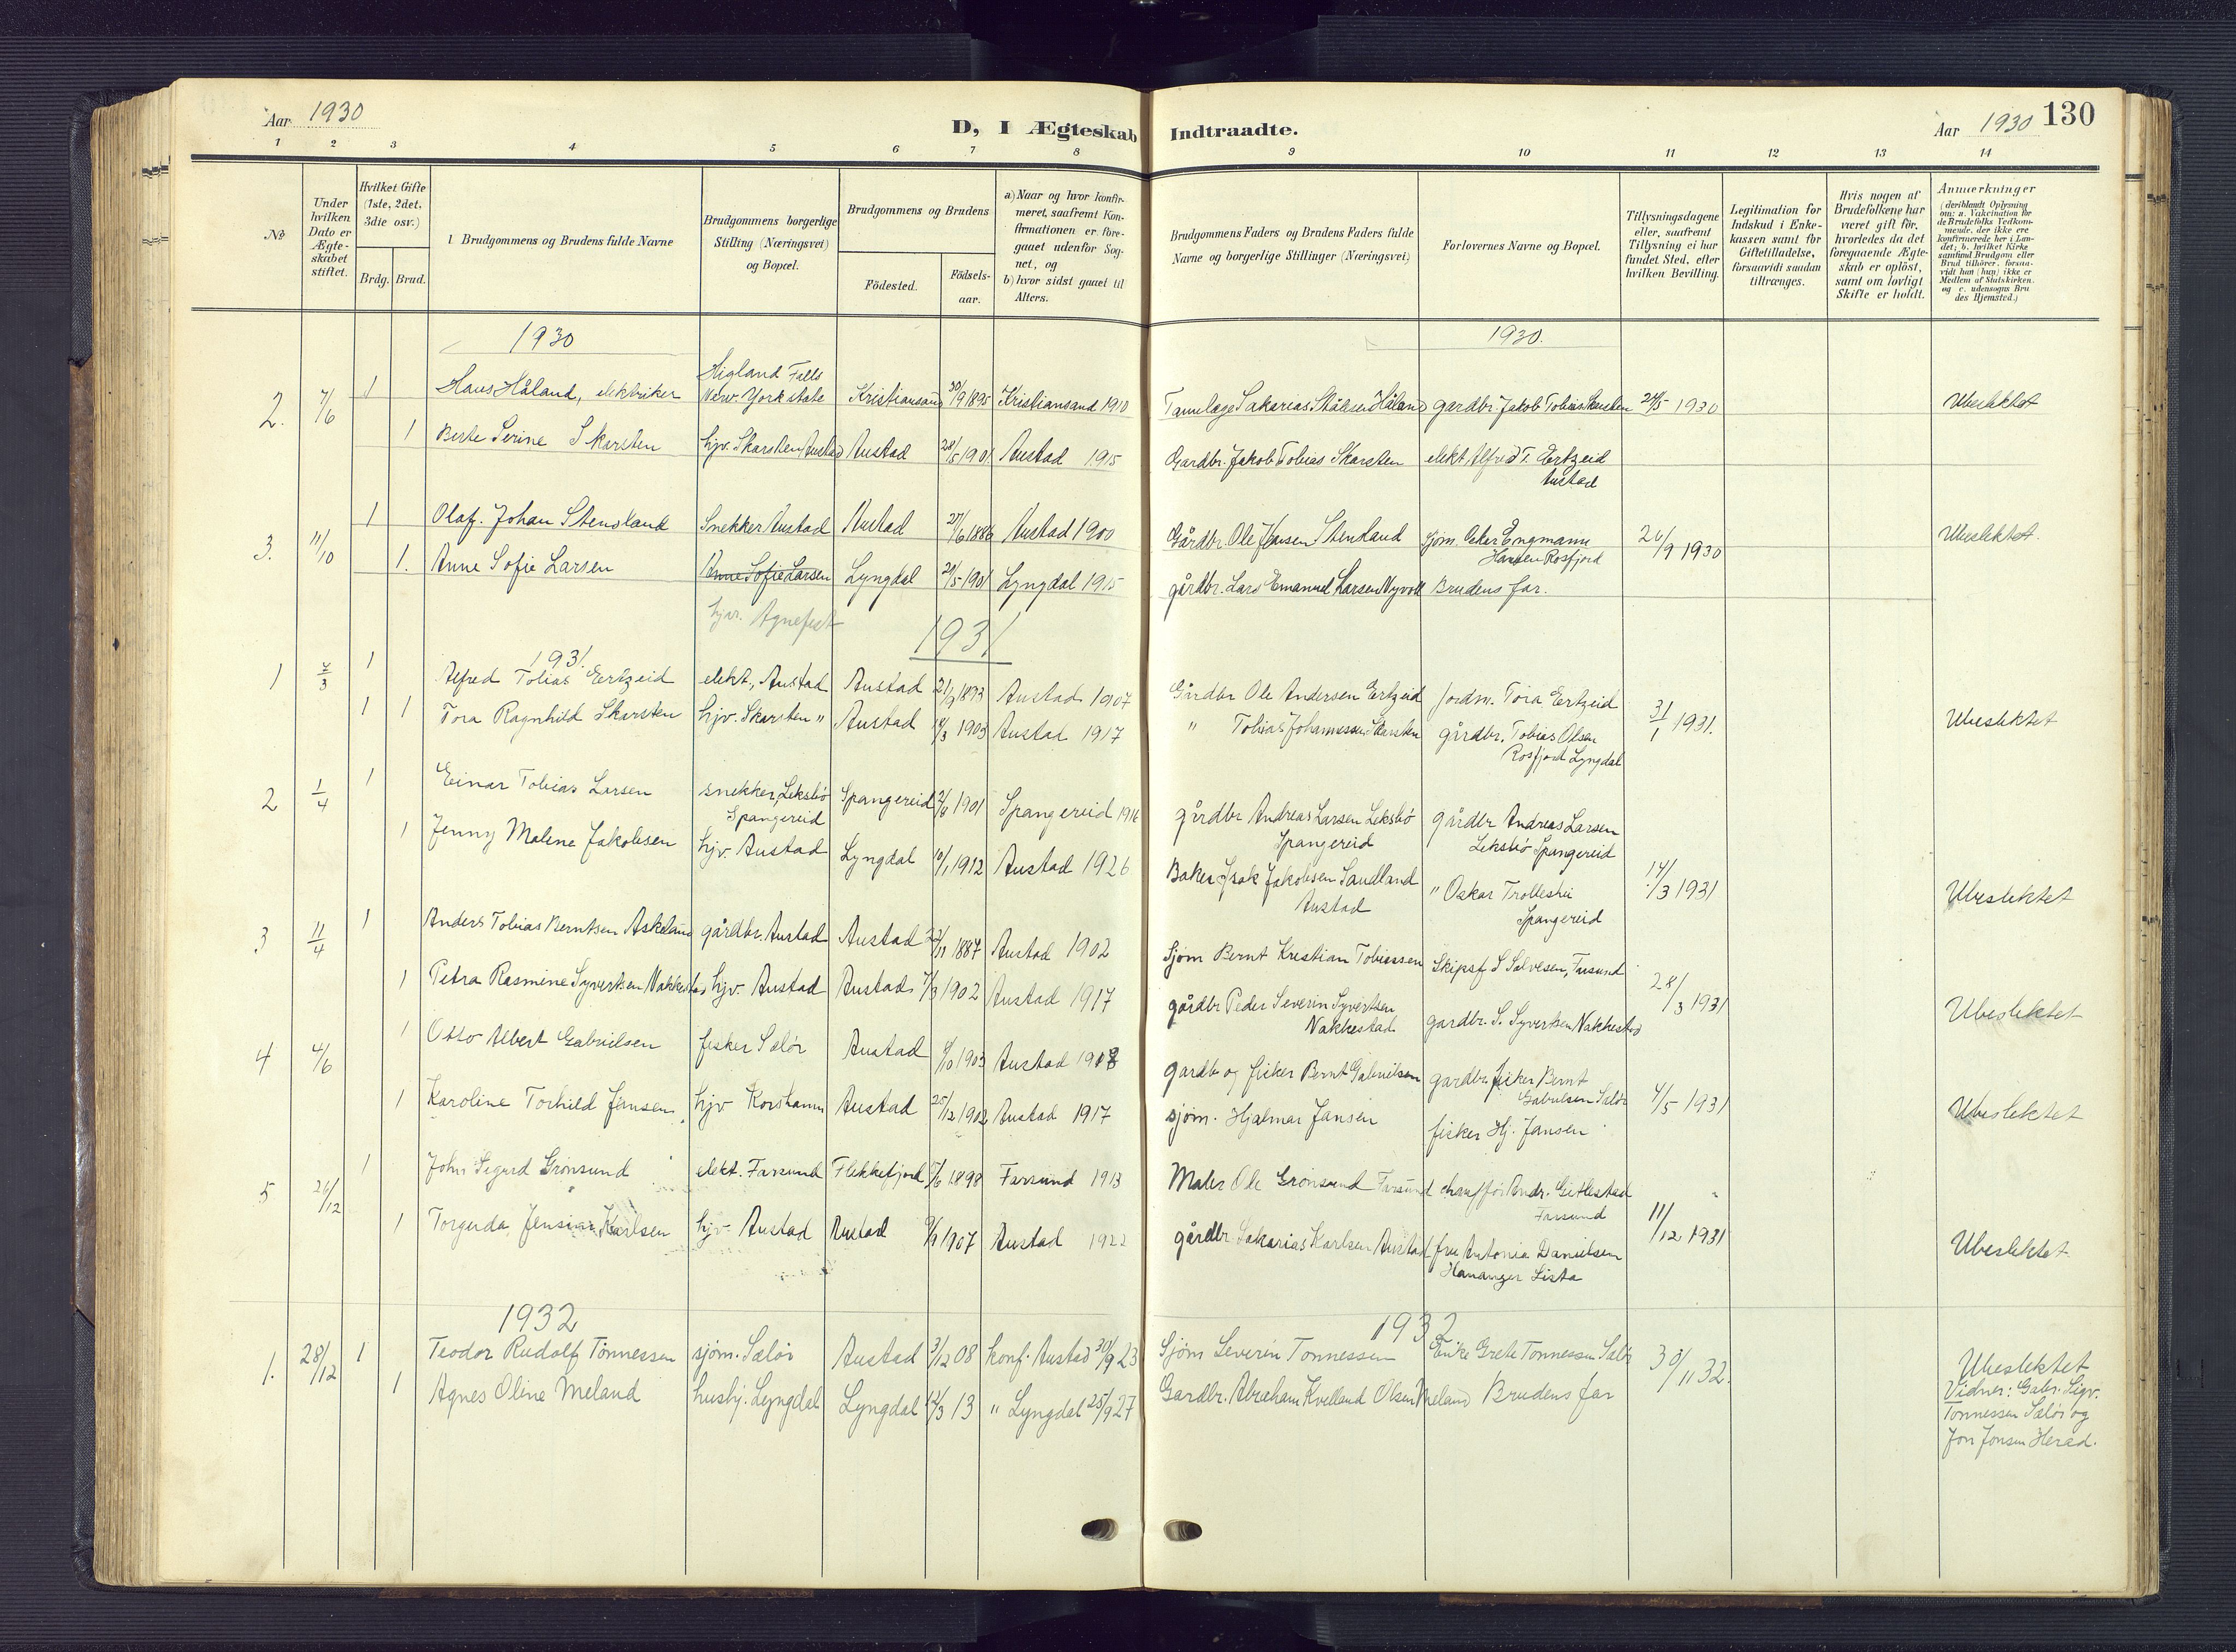 Aar 1930
D, I Ægteskab Indtraadte.
Aar 1930 130
1 2 3 4 5 6 7 8 9 10 11 12 13 14
No
Under hvilken Dato er Ægteskabet stiftet.
Hvilket Gifte (1ste, 2det, 3die osv.)
Brdg. Brud.
Brudgommens og Brudens fulde Navne
Brudgommens borgerlige Stilling (Næringsvei) og Bopæl.
Brudgommens og Brudens
Födested.
Födselsaar.
a) Naar og hvor konfirmeret, saafremt Konfirmationen er foregaaet udenfor Sognet, og
b) hvor sidst gaaet til Alters.
Brudgommens Faders og Brudens Faders fulde Navne og borgerlige Stillinger (Næringsvei)
Forlovernes Navne og Bopæl.
Tillysningsdagene eller, saafremt Tillysning ei har fundet Sted, efter hvilken Bevilling.
Legitimation for Indskud i Enkekassen samt for Giftetilladelse, forsaavidt saadan tiltrænges.
Hvis nogen af Brudefolkene har været gift før, hvorledes da det foregaaende Ægteskab er oplöst, samt om lovligt Skifte er holdt.
Anmærkninger (deriblandt Oplysning om: a. Vakcination for de Brudefolks Vedkommende, der ikke ere konfirmerede her i Landet; b. hvilket Kirkesamfund Brudgom eller Brud tilhörer, forsaavidt han (hun) ikke er Medlem af Statskirken, og c. udensogns Brudes Hjemsted.)
1930
1930.
2. 7/6 1 Hans Håland, elektriker Higland Falls New. York state Kristiansand 30/9 1895 Kristiansand 1910 Sakarias Håland gardbr. Jakob Tobias Skarsten 24/5 1930 Ubeslektet
1 Berte Serine Skarsten hjv. Skarsten Austad Austad 28/5 1901 Austad 1915 Gardbr. Jakob Tobias Skarsten elekt Alfred T. Ertzeid Austad
3. 11/10 1 Olaf. Johan Stensland Snekker Austad Austad 27/6 1886 Austad 1900 Gårdbr. Ole Jensen Stensland sjøm. Peder Engmann Hansen Rosfjord 26/9 1930 Ubeslektet.
1. Anne Sofie Larsen Anne Sofie Larsen Lyngdal 21/5 1901 Lyngdal 1915 gårdbr. Lars Emanuel Larsen Nyvoll Brudens far.
hjv. Agnefest
1931
1931.
1 7/3 1 Alfred Tobias Ertzeid elekt., Austad Austad 21/9 1893 Austad 1907 Gårdbr Ole Andersen Ertzeid jordm. Tora Ertzeid
1 1 Tora Ragnhild Skarsten hjv. Skarsten " Austad 14/3 1903 Austad 1917 " Tobias Johannessen Skarsten gårdbr. Tobias Olsen Rosfjord Lyngdal 31/1 1931. Ubeslektet
2 1/4 1 Einar Tobias Larsen snekker, Leksbö Spangereid Spangereid 1901 Spangereid 1916 gårdbr Andreas Larsen Leksbö Spangereid gårdbr Andreas Larsen Leksbö Spangereid
1 Jenny Malene Jakobsen hjv. Austad Lyngdal 10/1 1912 Austad 1926 Baker Isak Jakobsen Sandland Austad " Oskar Trollestei Spangereid 14/3 1931 Ubeslektet
3 11/4 1 Anders Tobias Berntsen Askeland gårdbr. Austad Austad 22/11 1887 Austad 1902 Sjøm Bernt Kristian Tobiassen Skipsf S Salvesen, Farsund
1 Petra Rasmine Syvertsen Nakkestad hjv. Austad Austad 7/3 1902 Austad 1917 gårdbr Peder Severin Syvertsen Nakkestad gardbr. S. Syvertsen Nakkestad 28/3 1931 Ubeslektet
4 4/6 1 Otto Albert Gabrielsen fisker Selör Austad 6/10 1903 Austad 1918 gardbr og fisker Bernt Gabrielsen gardbr. fisker Bernt Gabrielsen Selör
1 Karoline Torhild Jensen hjv Korshamn Austad 25/12 1902 Austad 1917 sjøm. Hjalmar Jansen fisker Hj. Jansen 4/5 1931 Ubeslektet
5 26/12 1 John Sigurd Grönsund elekt. Farsund Flekkefjord 5/6 1898 Farsund 1913 Maler Ole Grönsund Farsund chauffør Andr. Gitlestad Farsund
1 Torgerda Jensine Karlsen hjv. Austad Austad 9/9 1907 Austad 1922 gårdbr Sakarias Karlsen Austad fru Antonia Danielsen Hananger Lista 11/12 1931 Ubeslektet
1932
1932
1. 28/12 1 Teodor Rudolf Tönnessen sjøm. Selör Austad 3/12 08 konf. Austad 30/9 23 Sjøm Severin Tönnessen Enke Grete Tönnessen Selör 30/11 32. Ubeslektet
1 Agnes Oline Meland hushj. Lyngdal Lyngdal 12/3 13 " Lyngdal 25/9 27 Gardbr. Abraham Kvelland Olsen Meland Brudens far
Vidner: Gabr. Sigv. Tönnessen Selör og Jon Jonsen Herad.